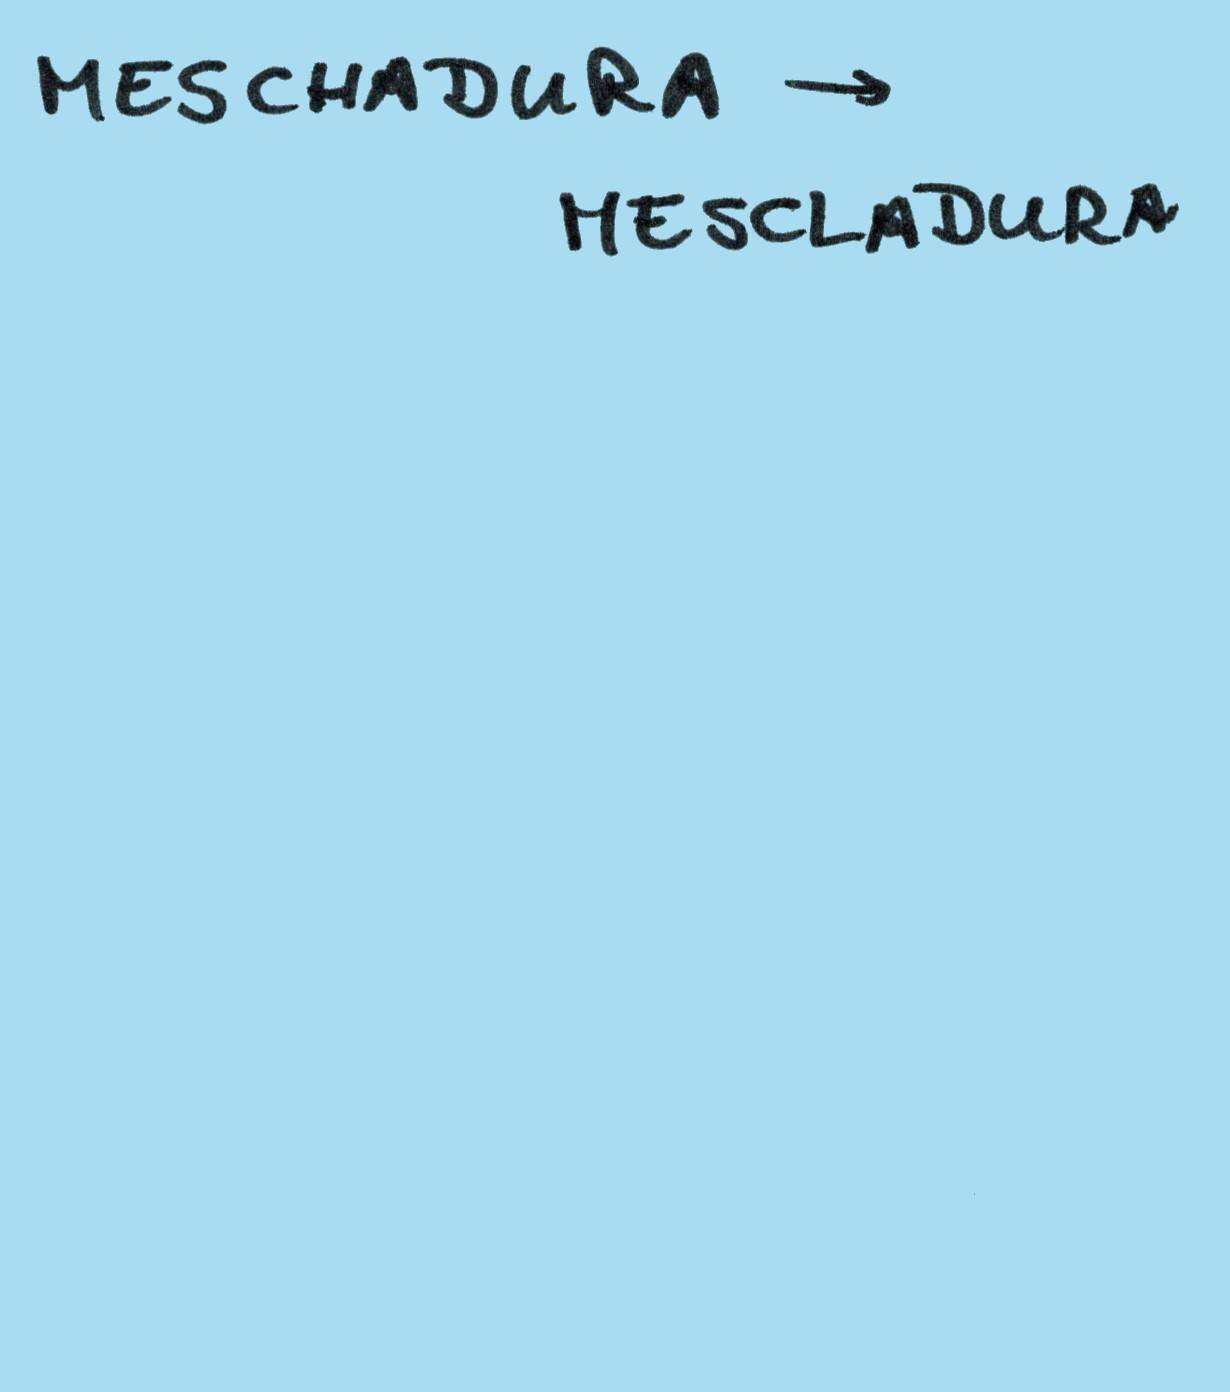 MESCHADURA →
MESCLADURA